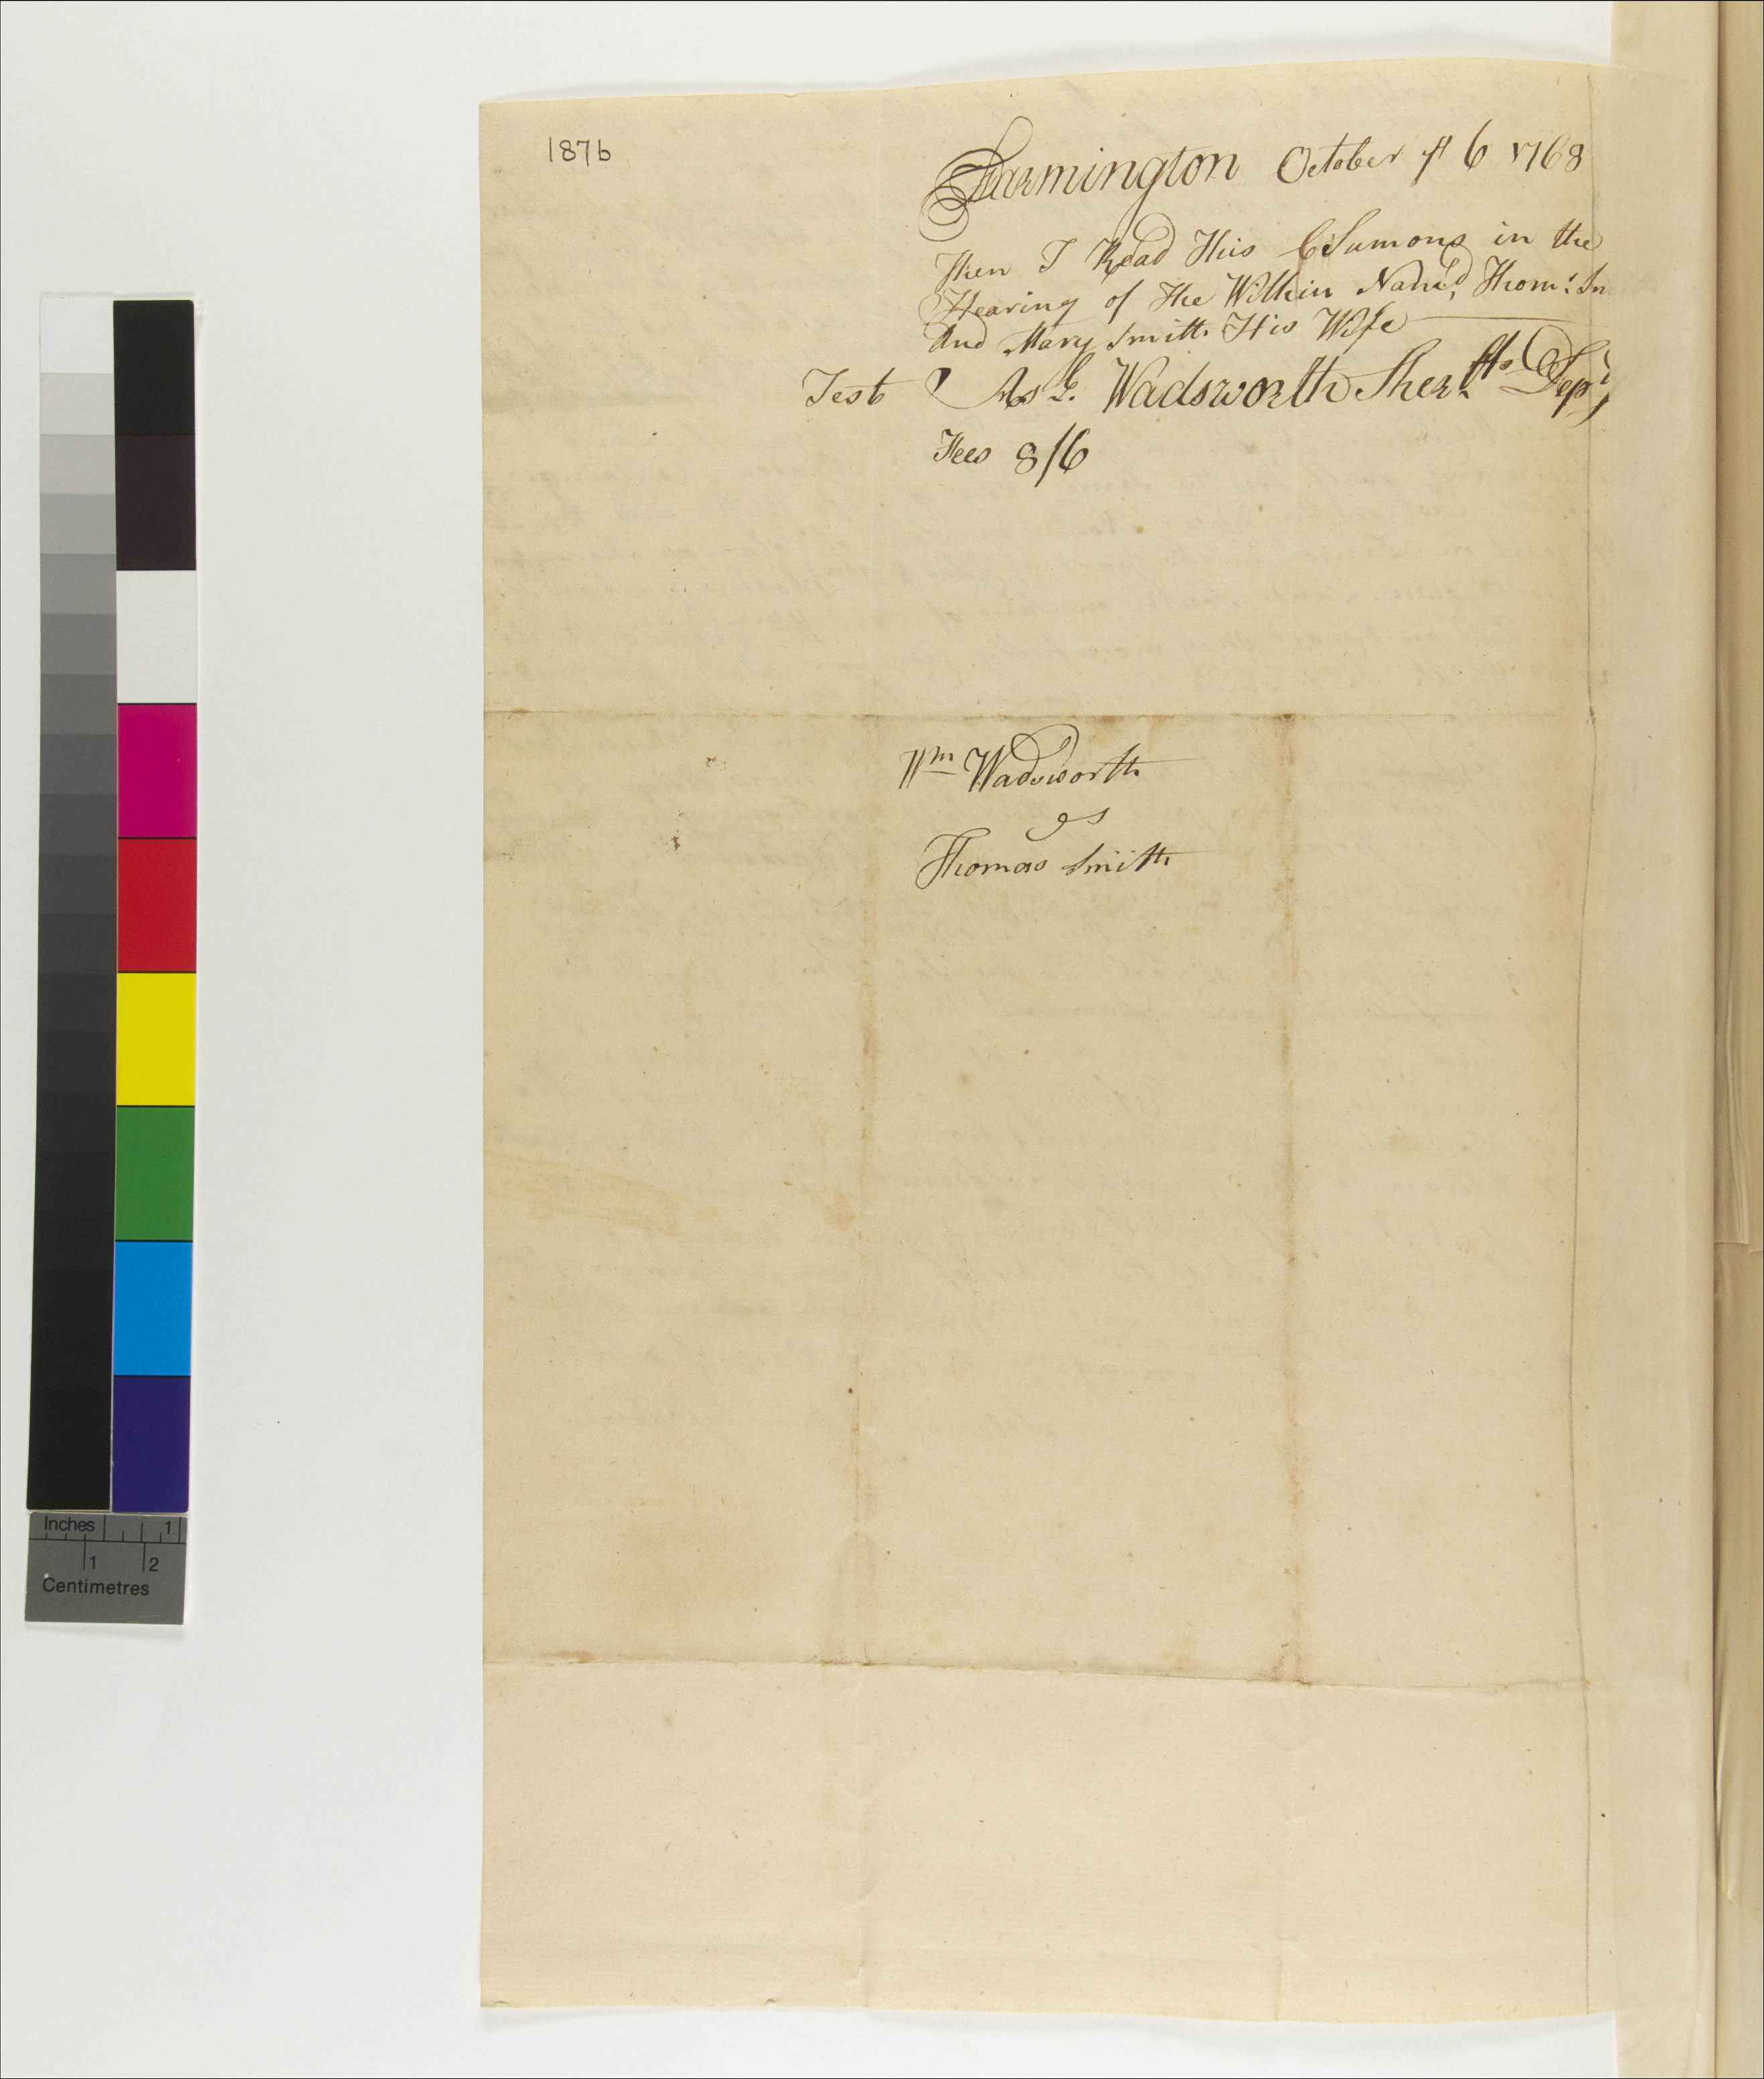 187b
Farmington October ye 6 1768
Then I Read This Sumons in the
Hearing of The Within Nam'd, Thoms: Sm
And Mary Smith His Wife
Test Wadsworth Sherffs Depy
Fees 8/6
Wm Wadsworth
gs
Thomas Smith
Inches 1
1 2
Centimetres